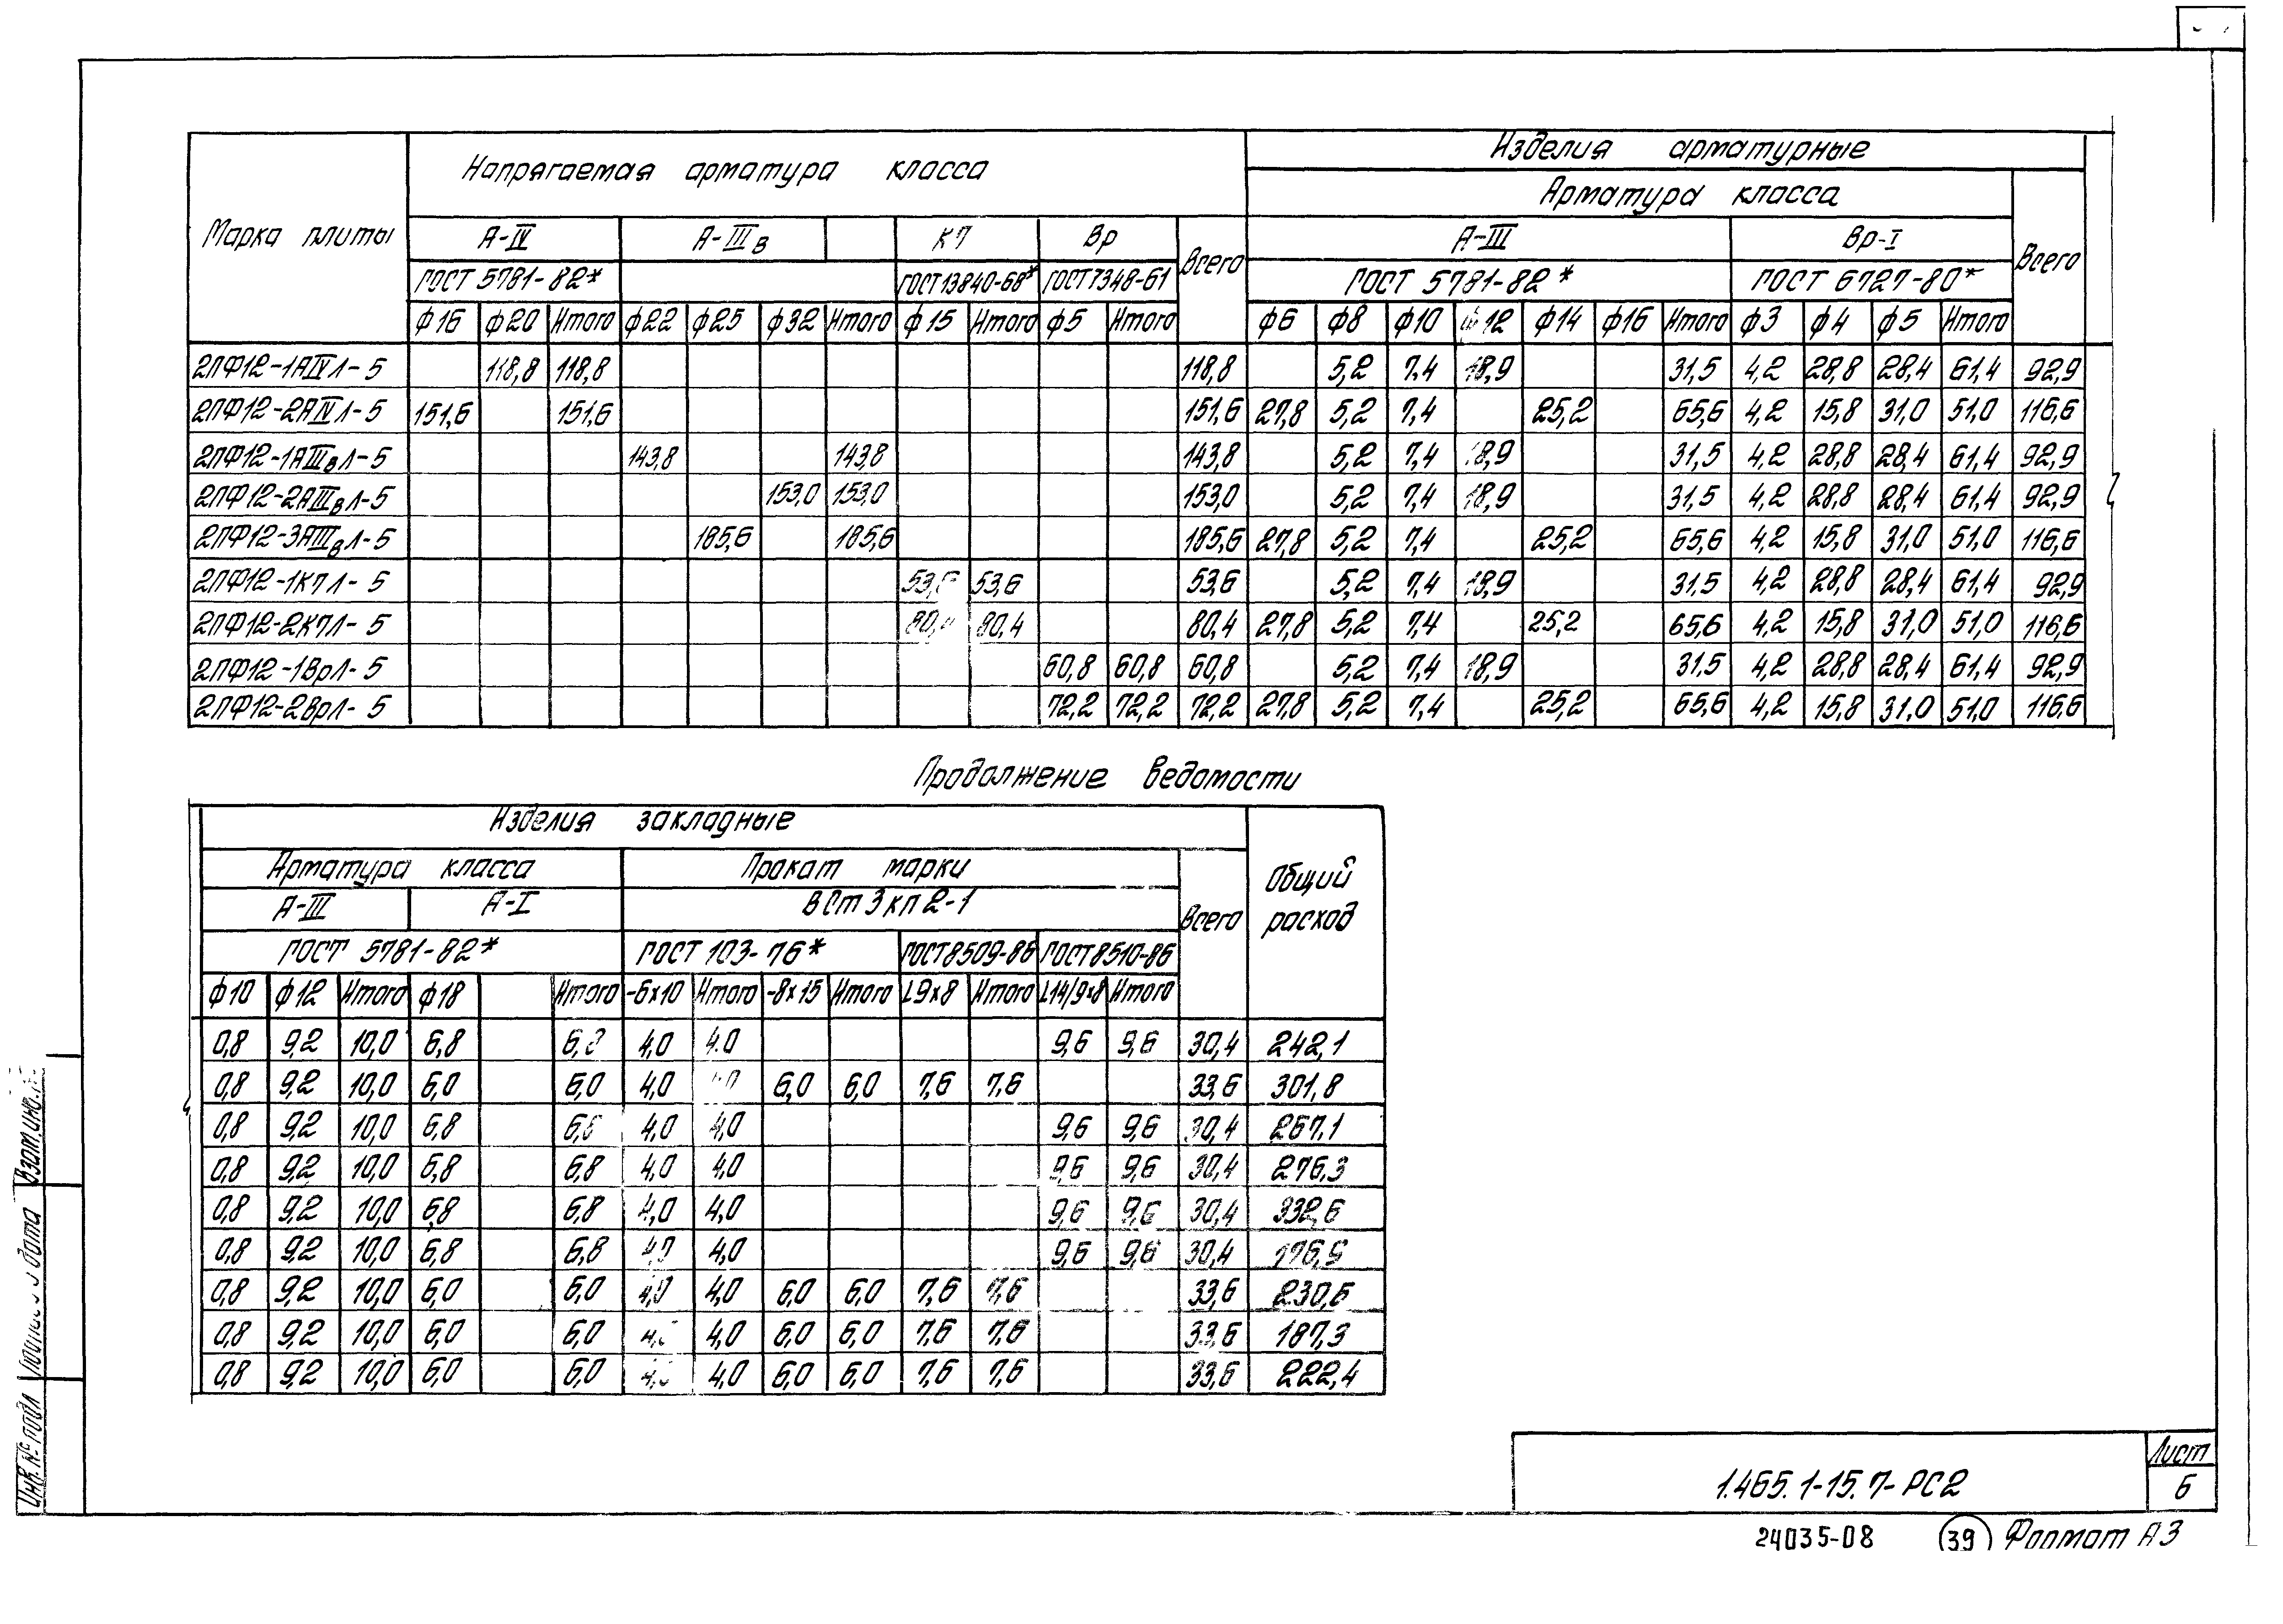 Изделия арматурные
Напрягаемая арматура класса
Арматура класса
Марка плиты
А-IV А-IIIв К7 Вр Всего А-III Вр-I Всего
ГОСТ 5781-82* ГОСТ13840-68* ГОСТ7348-61 ГОСТ 5781-82* ГОСТ 6727-80*
ф16 ф20 Итого ф22 ф25 ф32 Итого ф15 Итого ф5 Итого ф6 ф8 ф10 ф12 ф14 ф16 Итого ф3 ф4 ф5 Итого
2ПФ12-1АIVЛ-5 118,8 118,8 118,8 5,2 7,4 18,9 31,5 4,2 28,8 28,4 61,4 92,9
2ПФ12-2АIVЛ-5 151,6 151,6 151,6 27,8 5,2 7,4 25,2 65,6 4,2 15,8 31,0 51,0 116,6
2ПФ12-1АIIIвЛ-5 143,8 143,8 143,8 5,2 7,4 18,9 31,5 4,2 28,8 28,4 61,4 92,9
2ПФ12-2АIIIвЛ-5 153,0 153,0 153,0 5,2 7,4 18,9 31,5 4,2 28,8 28,4 61,4 92,9
2ПФ12-3АIIIвЛ-5 185,6 185,6 185,6 27,8 5,2 7,4 25,2 65,6 4,2 15,8 31,0 51,0 116,6
2ПФ12-1К7Л-5 53,6 53,6 53,6 5,2 7,4 18,9 31,5 4,2 28,8 28,4 61,4 92,9
2ПФ12-2К7Л-5 80,4 80,4 80,4 27,8 5,2 7,4 25,2 65,6 4,2 15,8 31,0 51,0 116,6
2ПФ12-1ВрЛ-5 60,8 60,8 60,8 5,2 7,4 18,9 31,5 4,2 28,8 28,4 61,4 92,9
2ПФ12-2ВрЛ-5 72,2 72,2 72,2 27,8 5,2 7,4 25,2 65,6 4,2 15,8 31,0 51,0 116,6
Продолжение ведомости
Изделия закладные
Арматура класса Прокат марки Всего Общий расход
А-III А-I ВСт3кп2-1
ГОСТ 5781-82* ГОСТ 103-76* ГОСТ8509-86 ГОСТ8510-86
ф10 ф12 Итого ф18 Итого -6х10 Итого -8х15 Итого L9х8 Итого L14/9х8 Итого
0,8 9,2 10,0 6,8 6,8 4,0 4.0 9,6 9,6 30,4 242,1
0,8 9,2 10,0 6,0 6,0 4,0 6,0 6,0 7,6 7,6 33,6 301,8
0,8 9,2 10,0 6,8 6,8 4,0 4,0 9,6 9,6 30,4 267,1
0,8 9,2 10,0 6,8 6,8 4,0 4,0 9,6 9,6 30,4 276,3
0,8 9,2 10,0 6,8 6,8 4,0 4,0 9,6 9,6 30,4 332,6
0,8 9,2 10,0 6,8 6,8 4,0 4,0 9,6 9,6 30,4 176,9
0,8 9,2 10,0 6,0 6,0 4,0 4,0 6,0 6,0 7,6 7,6 33,6 230,6
0,8 9,2 10,0 6,0 6,0 4,0 6,0 6,0 7,6 7,6 33,6 187,3
0,8 9,2 10,0 6,0 6,0 4,0 6,0 6,0 7,6 7,6 33,6 222,4
Взам.инв.№
дата
Инв.№ подл
1.465.1-15.7-РС2
Лист
6
24035-08 39 Формат А3